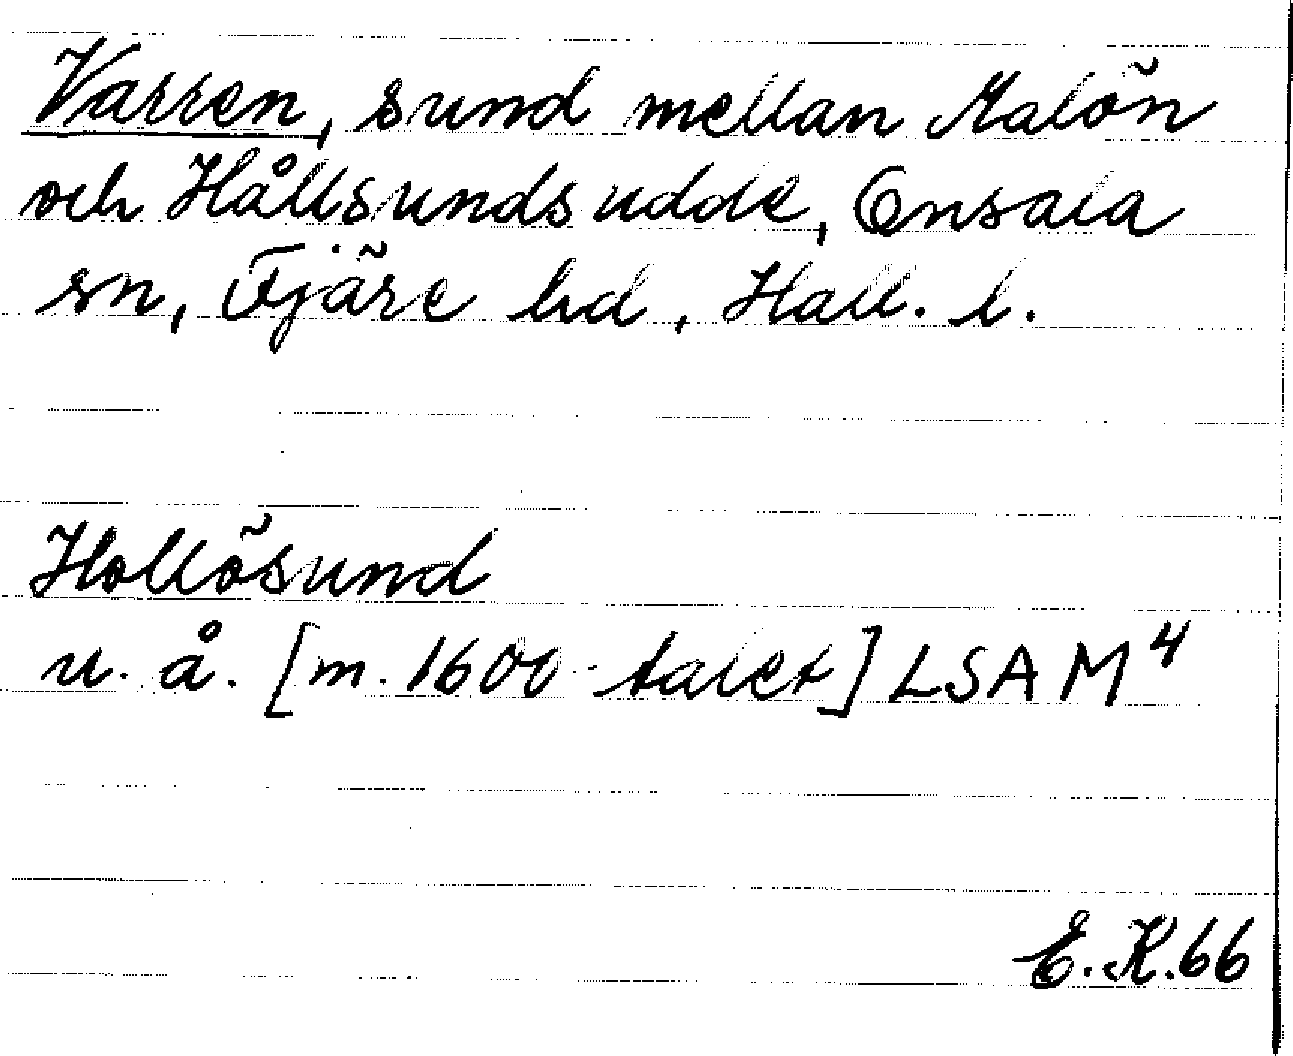 Varren, sund mellan Malön
och Hållsundsudde, Onsala
sn, Fjäre hd, Hall. l.
Hollösund
u. å. [m. 1600-talet] LSA M4
E.K.66